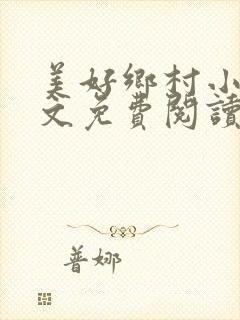 美好鄉村小
文免費閱讀
普娜